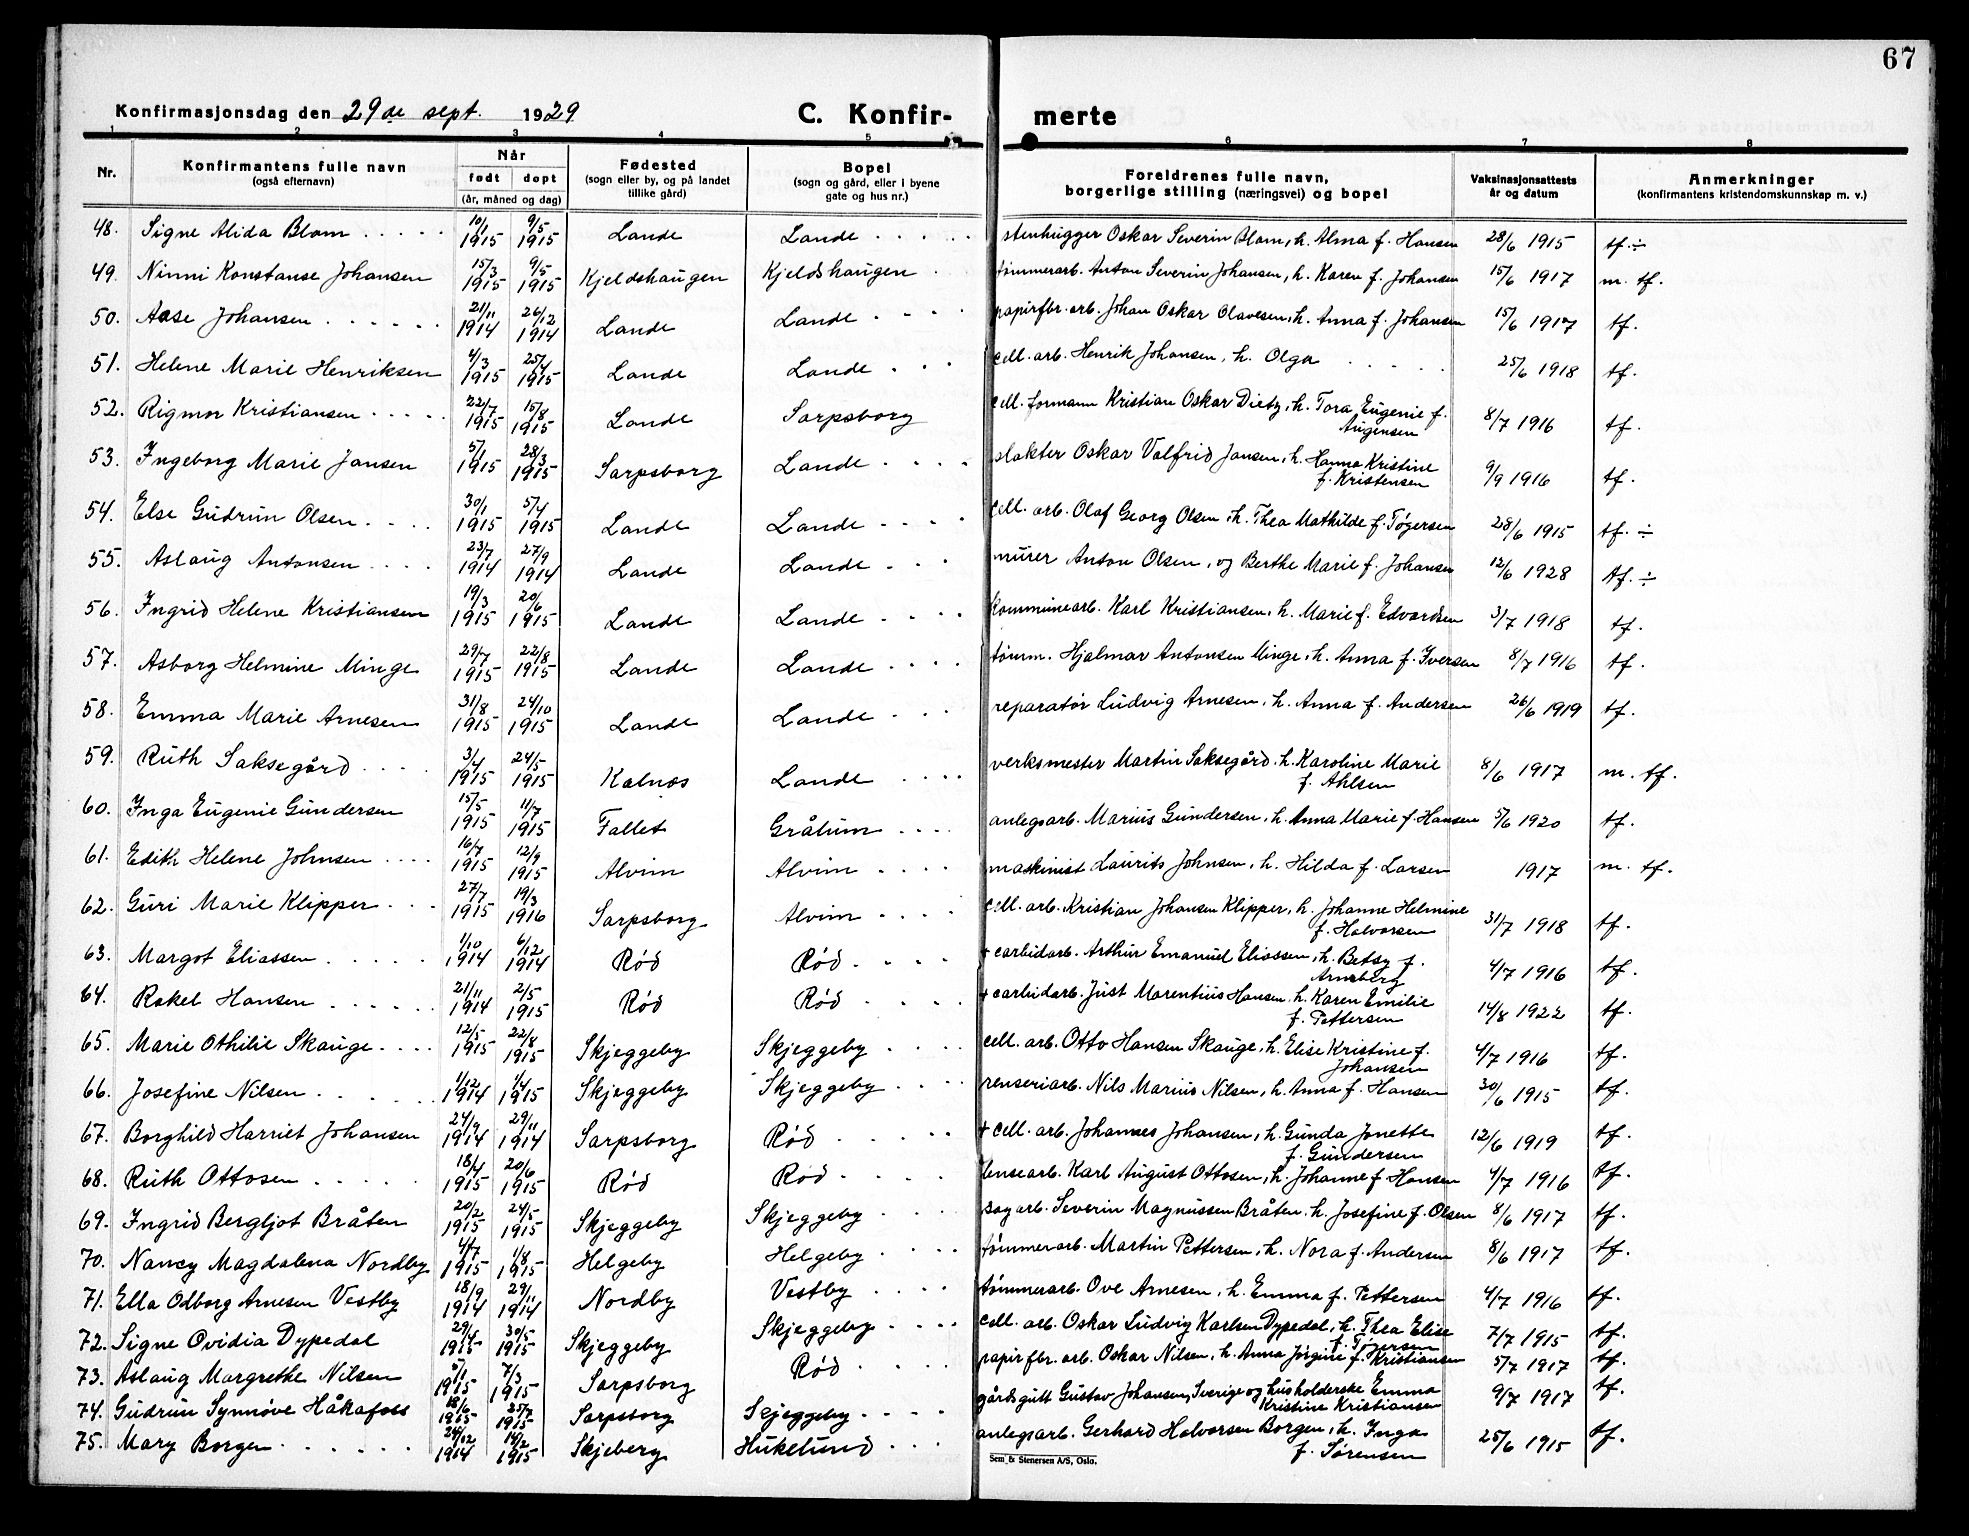 67
Konfirmasjonsdag den 29de sept. 1929
C. Konfir-
merte
1 2 3 4 5 6 7 8
Nr. Konfirmantens fulle navn (også efternavn) Når født døpt (år, måned og dag) Fødested (sogn eller by, og på landet tillike gård) Bopel (sogn og gård, eller i byene gate og hus nr.) Foreldrenes fulle navn, borgerlige stilling (næringsvei) og bopel Vaksinasjonsattests år og datum Anmerkninger (konfirmantens kristendomskunnskap m. v.)
48. Signe Alida Blom 10/1 1915 9/5 1915 Lande Lande stenhugger Oskar Severin Blom, h. Alma f. Hansen 28/6 1915 tf. ÷
49. Ninni Konstanse Johansen 15/3 1915 9/5 1915 Kjeldshaugen Kjeldshaugen tømmerarb. Anton Severin Johansen, h. Karen f. Johansen 15/6 1917 m. tf.
50. Aase Johansen 21/11 1914 26/12 1914 Lande Lande papirfbr. arb. Johan Oskar Olavesen, h. Anna f. Johansen 15/6 1917 tf.
51. Helene Marie Henriksen 4/3 1915 25/4 1915 Lande Lande cell. arb. Henrik Johansen, h. Olga 25/6 1918 tf.
52. Rigmor Kristiansen 22/7 1915 15/8 1915 Lande Sarpsborg cell. formann Kristian Oskar Dietz, h. Tora Eugenie f. Augensen 8/7 1916 tf.
53. Ingeborg Marie Jansen 5/1 1915 28/3 1915 Sarpsborg Lande slakter Oskar Valfrid Jansen, h. Hanna Kristine f. Kristensen 9/9 1916 tf.
54. Else Gudrun Olsen 30/1 1915 5/4 1915 Lande Lande cell. arb. Olaf Georg Olsen, h. Thea Mathilde f. Tøgersen 28/6 1915 tf. ÷
55. Aslaug Antonsen 23/7 1914 27/9 1914 Lande Lande murer Anton Olsen, og Berthe Marie f. Johansen 12/6 1928 tf. ÷
56. Ingrid Helene Kristiansen 19/3 1915 20/6 1915 Lande Lande kommunearb. Karl Kristiansen, h. Marie f. Edvardsen 3/7 1918 tf.
57. Asborg Helmine Minge 29/7 1915 22/8 1915 Lande Lande tømm. Hjalmar Antonsen Minge, h. Anna f. Iversen 8/7 1916 tf.
58. Emma Marie Arnesen 31/8 1915 24/10 1915 Lande Lande reparatør Ludvig Arnesen, h. Anna f. Andersen 26/6 1919 tf.
59. Ruth Saksegård 3/4 1915 24/5 1915 Kalnes Lande verksmester Martin Saksegård, h. Karoline Marie f. Ahlsen 8/6 1917 m. tf.
60. Inga Eugenie Gundersen 15/5 1915 11/7 1915 Fallet Gråtum anlegsarb. Marius Gundersen, h. Anna Marie f. Hansen 5/6 1920 tf.
61. Edith Helene Johnsen 16/7 1915 12/9 1915 Alvim Alvim maskinist Laurits Johnsen, h. Hilda f. Larsen 1917 m. tf.
62. Guri Marie Klipper 27/7 1915 19/3 1916 Sarpsborg Alvim cell. arb. Kristian Johansen Klipper, h. Johanne Helmine f. Halvorsen 31/7 1918 tf.
63. Margot Eliassen 1/10 1914 6/12 1914 Rød Rød + carbidarb. Arthur Emanuel Eliassen, h. Betsy f. Arneberg 4/7 1916 tf.
64. Rakel Hansen 21/11 1914 2/5 1915 Rød Rød + carbidarb. Just Marentius Hansen, h. Karen Emilie f. Pettersen 14/8 1922 tf.
65. Marie Othilie Skauge 12/5 1915 22/8 1915 Skjeggeby Skjeggeby cell. arb. Otto Hansen Skauge, h. Elise Kristine f. Johansen 4/7 1916 tf.
66. Josefine Nilsen 1/12 1914 1/4 1915 Skjeggeby Skjeggeby renseriarb. Nils Marius Nilsen, h. Anna f. Hansen 30/6 1915 tf.
67. Borghild Harriet Johansen 24/9 1914 29/11 1914 Sarpsborg Rød + cell. arb. Johannes Johansen, h. Gunda Jonette f. Gundersen 12/6 1919 tf.
68. Ruth Ottosen 18/4 1915 20/6 1915 Rød Rød lensearb. Karl August Ottosen, h. Johanne f. Hansen 4/7 1916 tf.
69. Ingrid Bergljot Bråten 20/2 1915 24/5 1915 Skjeggeby Skjeggeby sagarb. Severin Magnussen Bråten, h. Josefine f. Olsen 8/6 1917 tf.
70. Nancy Magdalena Nordby 4/7 1915 1/8 1915 Helgeby Helgeby tømmerarb. Martin Pettersen, h. Nora f. Andersen 8/6 1917 tf.
71. Ella Odborg Arnesen Vestby 18/9 1914 29/11 1914 Nordby Vestby tømmerarb. Ove Arnesen, h. Emma f. Pettersen 4/7 1916 tf.
72. Signe Ovidia Dypedal 29/4 1915 30/5 1915 Skjeggeby Skjeggeby cell. arb. Oskar Ludvig Karlsen Dypedal, h. Thea Elise 7/7 1915 tf.
73. Aslaug Margrethe Nilsen 5/1 1915 7/3 1915 Sarpsborg Rød papirfbr. arb. Oskar Nilsen, h. Anna Jørgine f. Kristiansen 5/7 1917 tf.
74. Gudrun Synnøve Håkafoss 18/6 1915 25/7 1915 Sarpsborg Skjeggeby gårdsgutt Gustav Johansen, Sverige og husholderske Emma Kristine Kristiansen 9/7 1917 tf.
75. Mary Borgen 24/12 1914 14/2 1915 Skjeberg Hukelund anlegsarb. Gerhard Halvorsen Borgen, h. Inga f. Sørensen 25/6 1915 tf.
Sem & Stenersen A/S, Oslo.